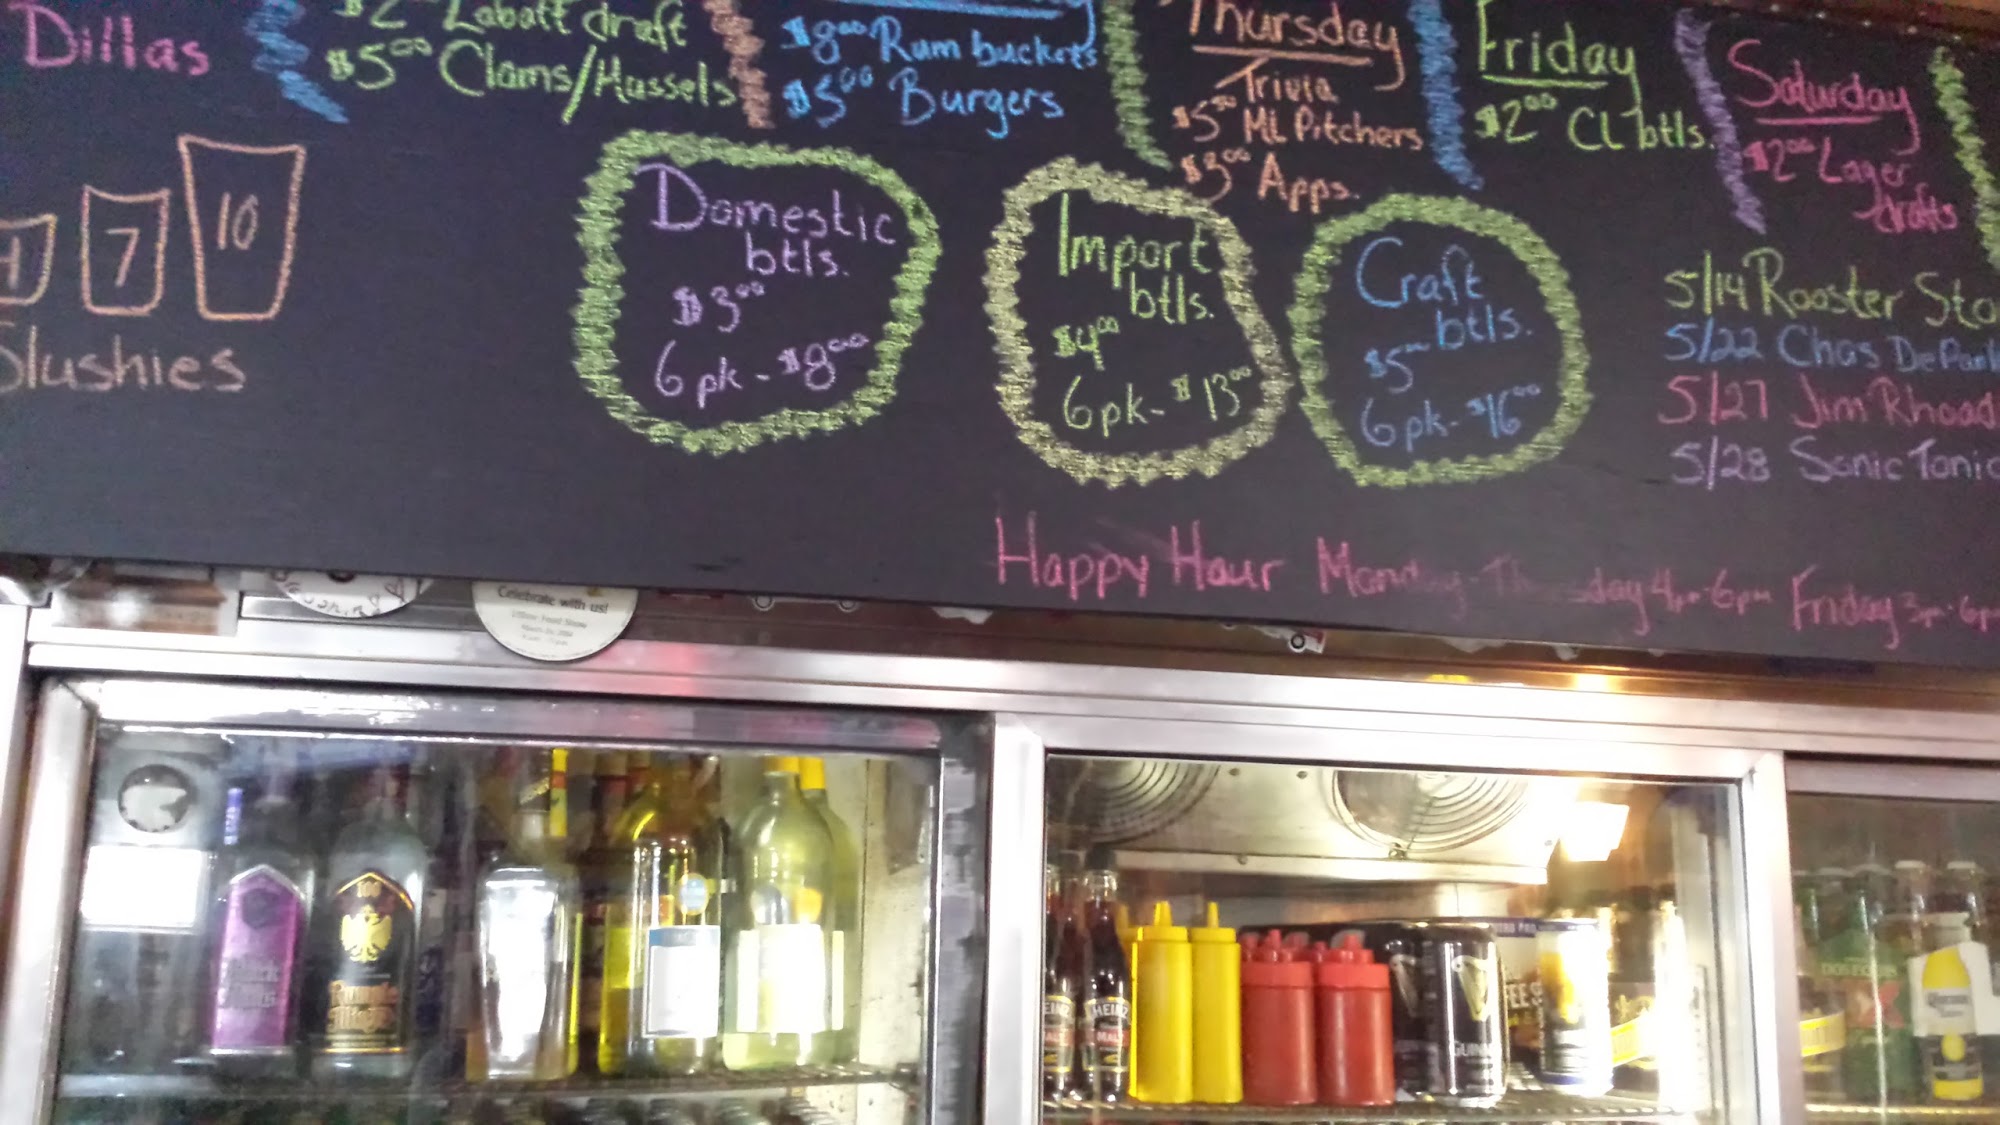 Dillas
$2⁰⁰ Labatt draft
$5⁰⁰ Clams/Mussels
$8⁰⁰ Rum buckets
$5⁰⁰ Burgers
Thursday
Trivia
$5⁰⁰ ML Pitchers
$3⁰⁰ Apps.
Friday
$2⁰⁰ CL btls.
Saturday
$2⁰⁰ Lager
drafts
4
7
10
Slushies
Domestic
btls.
$3⁰⁰
6pk - $8⁰⁰
Import
btls.
$4⁰⁰
6pk - $13⁰⁰
Craft
btls.
$5⁰⁰
6pk - $16⁰⁰
5/14 Rooster
5/22 Chas
5/27 Jim
5/28 Sonic Tonic
Happy Hour Monday-Thursday 4pm-6pm Friday 3pm-6pm
Celebrate with us!
100
HEINZ
MALT
HEINZ
GUINN
DOS EQUIS
Corona